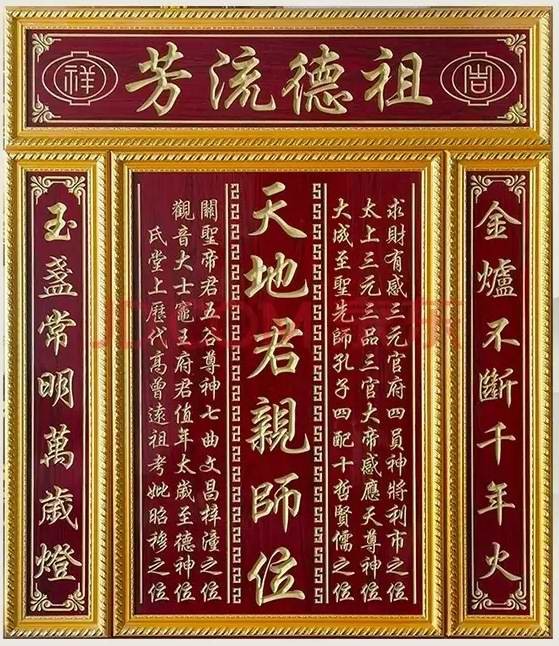 吉
祖德流芳
祥
金爐不斷千年火
求財有感三元官府四員神將利市之位
太上三元三品三官大帝感應天尊神位
大成至聖先師孔子四配十哲賢儒之位
天地君親師位
關聖帝君五谷尊神七曲文昌梓潼之位
觀音大士竈王府君值年太歲至德神位
氏堂上歷代高曾遠祖考妣昭穆之位
玉盞常明萬歲燈